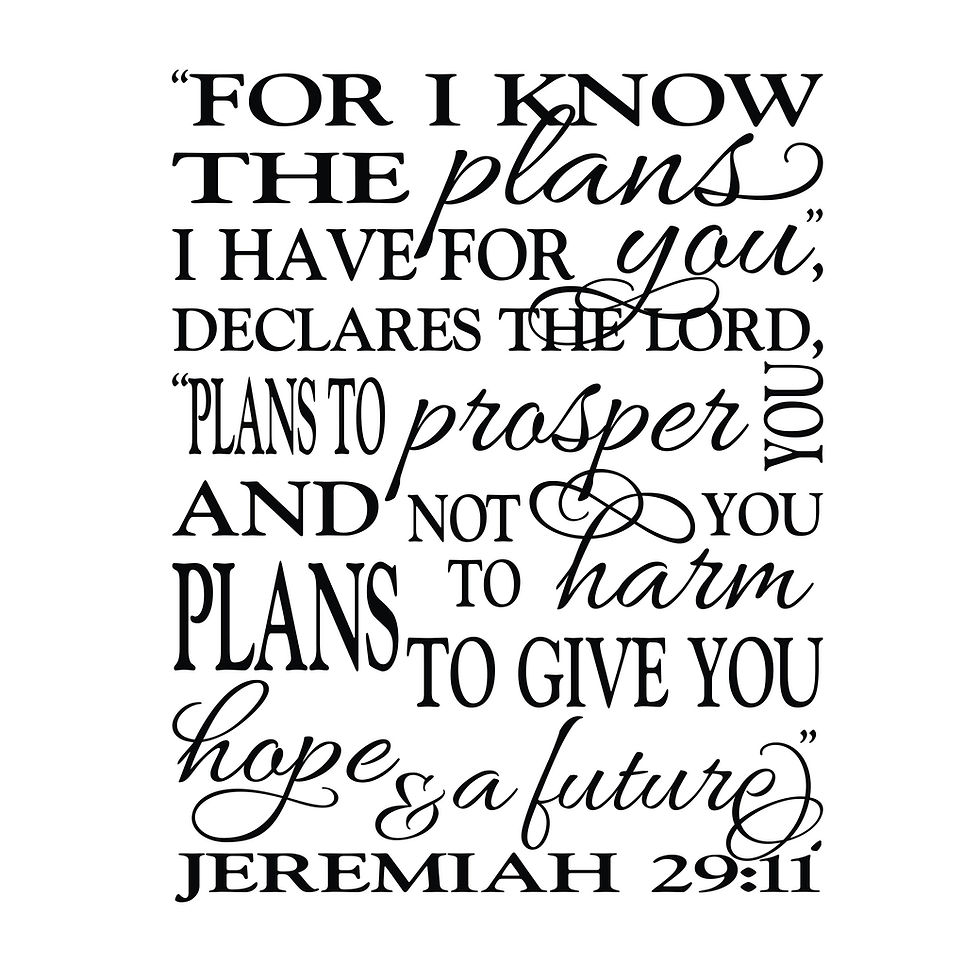 “FOR I KNOW
THE plans
I HAVE FOR you”,
DECLARES THE LORD,
“PLANS TO prosper YOU
AND NOT YOU
TO harm
PLANS TO GIVE YOU
hope & a future”,
JEREMIAH 29:11